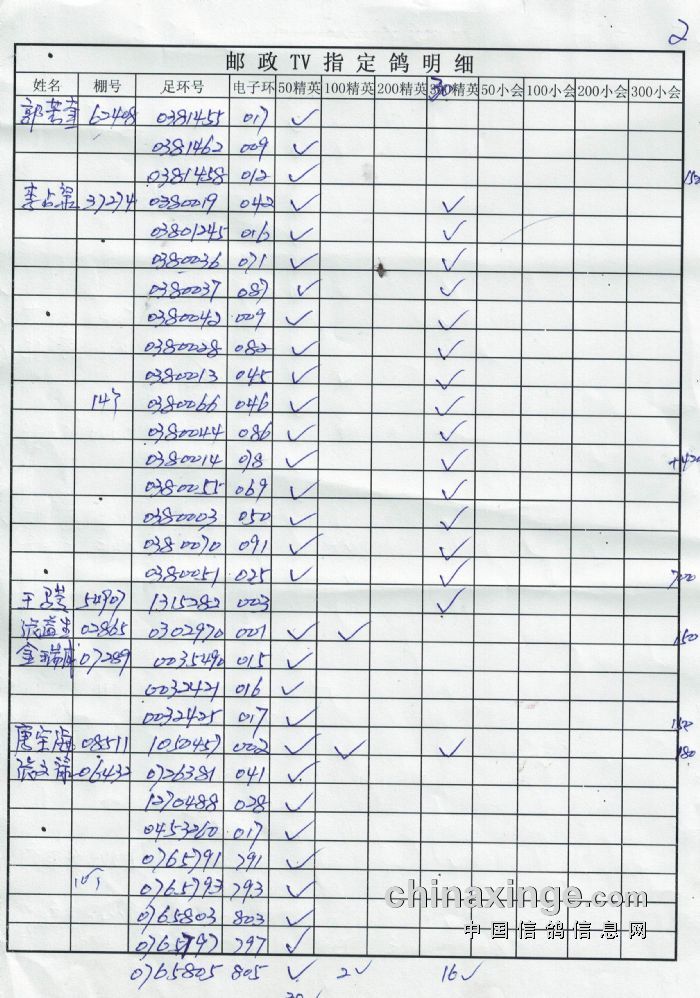 2
邮政TV指定鸽明细
姓名 棚号 足环号 电子环 50精英 100精英 200精英 300精英 50小会 100小会 200小会 300小会
62408 0381455 017 ✓
0381462 009 ✓
0381458 012 ✓
37274 0380019 042 ✓ ✓
03801245 016 ✓ ✓
0380036 071 ✓ ✓
0380037 087 ✓ ✓
0380042 009 ✓ ✓
0380028 082 ✓ ✓
0380013 045 ✓ ✓
0380066 046 ✓ ✓
0380044 086 ✓ ✓
0380014 ✓ ✓
0380055 069 ✓ ✓
0380003 050 ✓ ✓
0380070 091 ✓ ✓
0380051 025 ✓ ✓ 700
1315282 003 ✓
02865 0302970 001 ✓ ✓ 150
07289 0035490 015 ✓
0032421 016 ✓
0032425 017 ✓ 150
08511 1050457 002 ✓ ✓ ✓ 180
张文 06432 0726381 041 ✓
1270488 028 ✓
0453260 017 ✓
0765791 791 ✓
0765793 793 ✓
0765803 803 ✓
0765797 797 ✓
0765805 805 ✓ 2✓ 16✓
chinaxinge.com
中国信鸽信息网